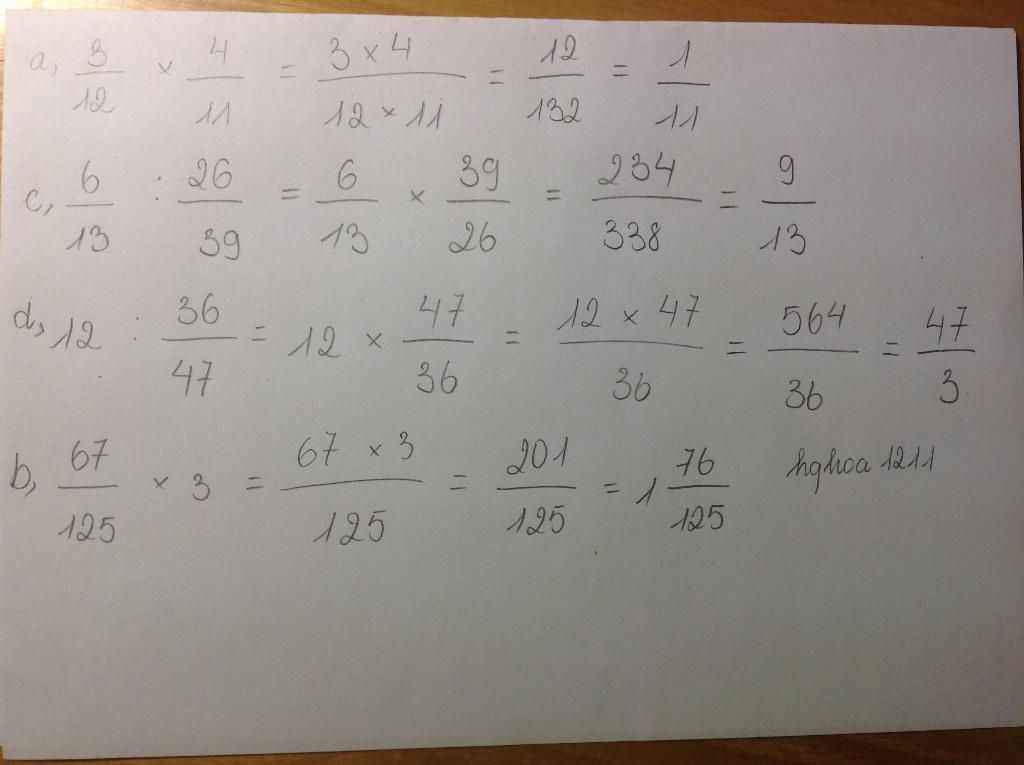 a, 3/12 × 4/11 = 3 × 4/12 × 11 = 12/132 = 1/11
c, 6/13 : 26/39 = 6/13 × 39/26 = 234/338 = 9/13
d, 12 : 36/47 = 12 × 47/36 = 12 × 47/36 = 564/36 = 47/3
b, 67/125 × 3 = 67 × 3/125 = 201/125 = 1 76/125 hqhoa 1211